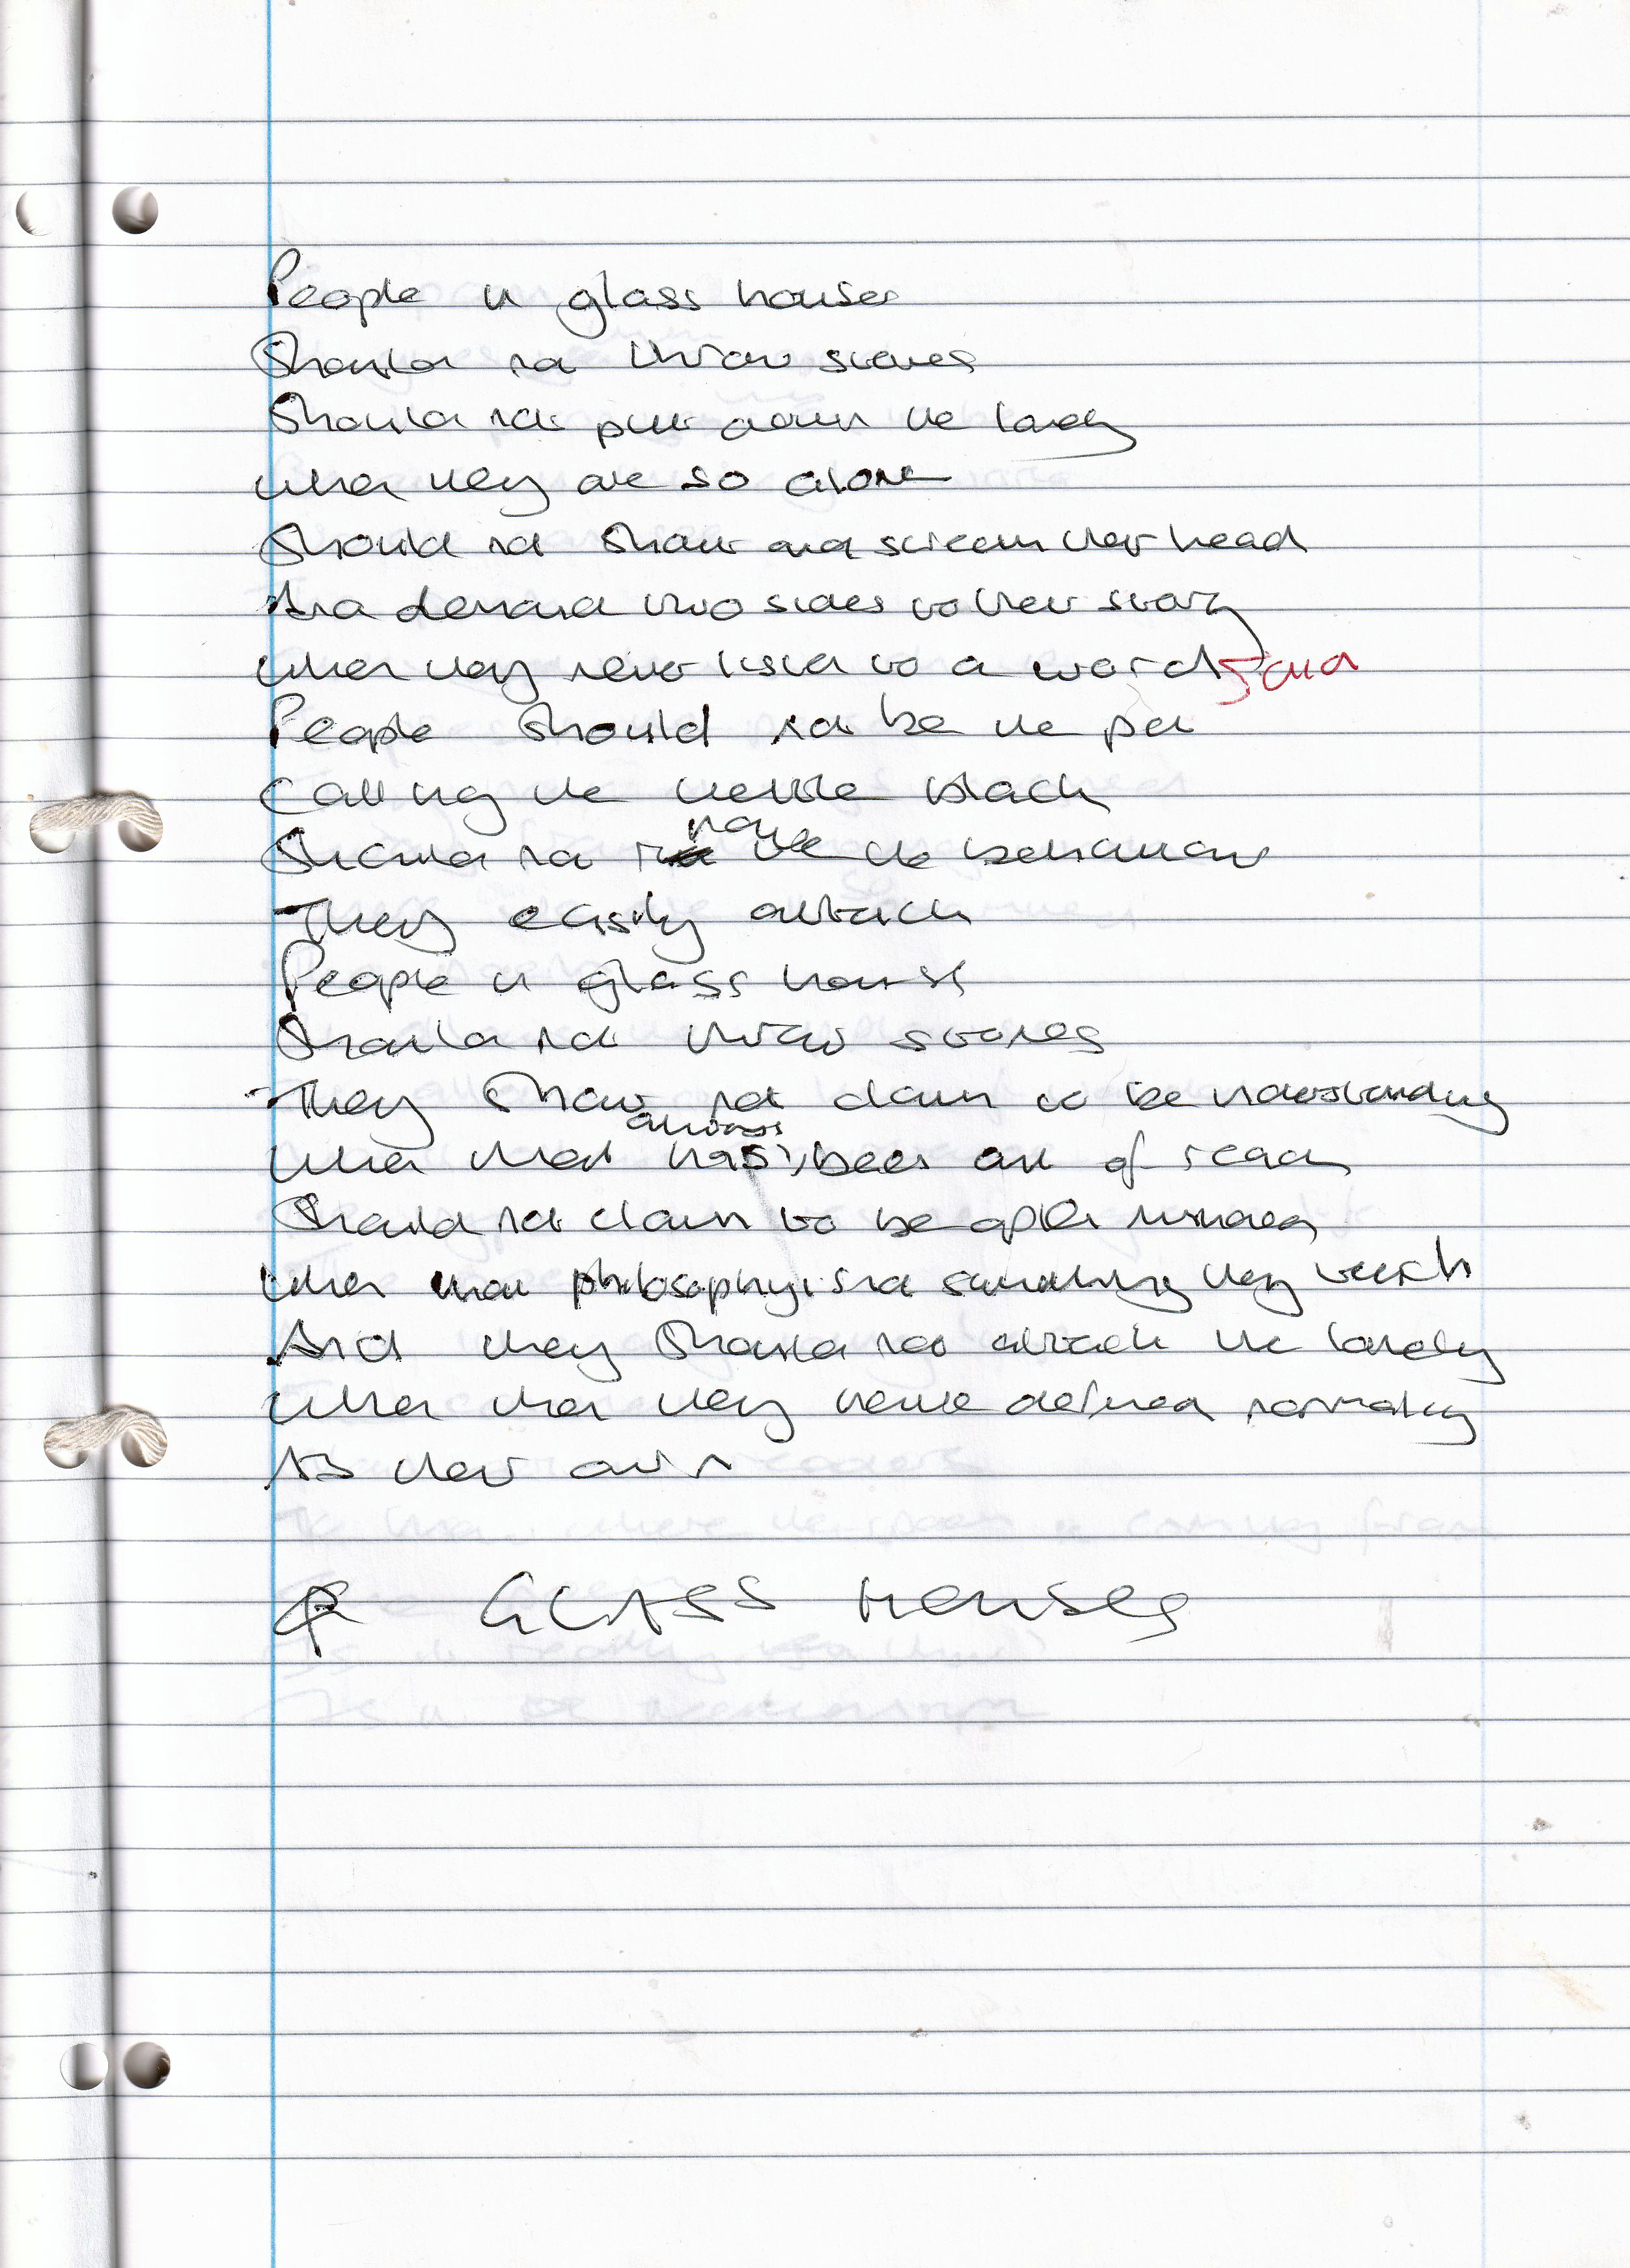 People in glass houses
Should not throw stones
Should not put down the lonely
When they are so alone
Should not shout and scream their head
And demand two sides to their story
When they never listen to a word said
People should not be the pot
Calling the kettle black
Should not have the behaviour
They easily attach
People in glass houses
Should not throw stones
They should not claim to be understanding
When that has always been out of reach
Should not claim to be open minded
When that philosophy isnt something they teach
And they should not attack the lonely
When that they have defined normality
As their own
GLASS HOUSES